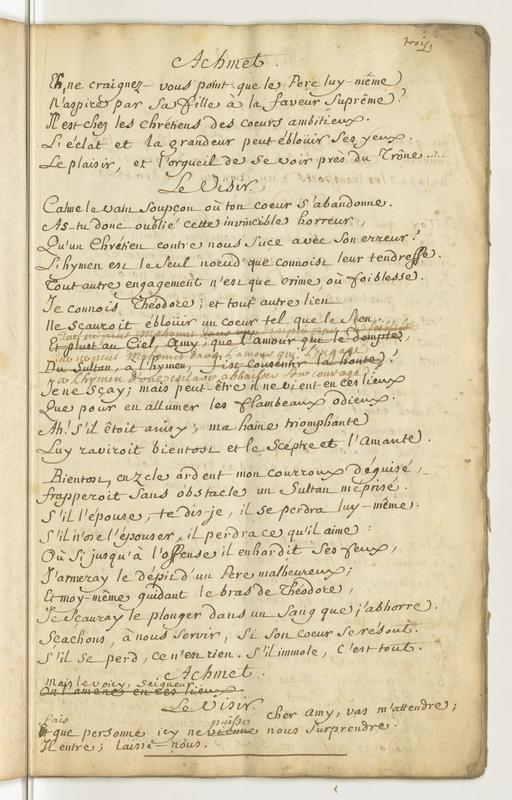 trois
Achmet.
Eh, ne craignez-vous point que le Pere luy-même
N'aspire par Sa fille à la faveur Suprême?
Il est chez les Chrétiens des coeurs ambitieux.
L'éclat et la grandeur peut éblöuir Ses yeux.
Le plaisir, et l'orgueil de se voir près du Trône.....
Le Visir.
Calme le vain Soupçon où ton coeur S'abandonne.
As-tu donc oublié cette invincible horreur,
Qu'un Chrétien contre nous Suce avec Son erreur?
L'hymen est le Seul noeud que connoist leur tendresse.
Tout autre engagement n'est que crime, où foiblesse.
Je connois Théodore; et tout autre lien
Ne Sçauroit éblöuir un coeur tel que le Sien.
Et plust au Ciel, Amy, que l'amour que le dompte,
que ne peut Mahomet dans l'amour qui l'engage
Du Sultan, à l'hymen, fist consentir la honte!
à l'hymen d'une esclave abaisser Son courage!
Je ne Sçay; mais peut être il ne vient en ces lieux
Que pour en allumer les flambeaux odieux.
Ah! S'il étoit ainsy; ma haine triomphante
Luy raviroit bientost et le Scéptre et l'Amante.
Bientost, cu zele ardent mon courroux déguisé,
frapperoit Sans obstacle un Sultan méprisé.
S'il l'épouse, te dis-je, il se perdra luy-même.
S'il n'ose l'épouser, il perdra ce qu'il aime:
Où Si jusqu'à l'offense il enhardit Ses feux,
J'armeray le dépit d'un Pere malheureux;
Et moy-même guidant le bras de Théodore,
Je Sçauray le plonger dans un Sang que j'abhorre.
Scachons, à nous Servir, Si Son coeur Se résout.
S'il Se perd, ce n'est rien. S'il immole, C'est tout.
Achmet.
Mais le voicy, Seigneur.
On l'amène en ces lieux
Le Visir.
cher amy, vas m'attendre;
fais puisse
Et que personne icy ne vienne nous Surprendre.
Il entre; laisse nous.